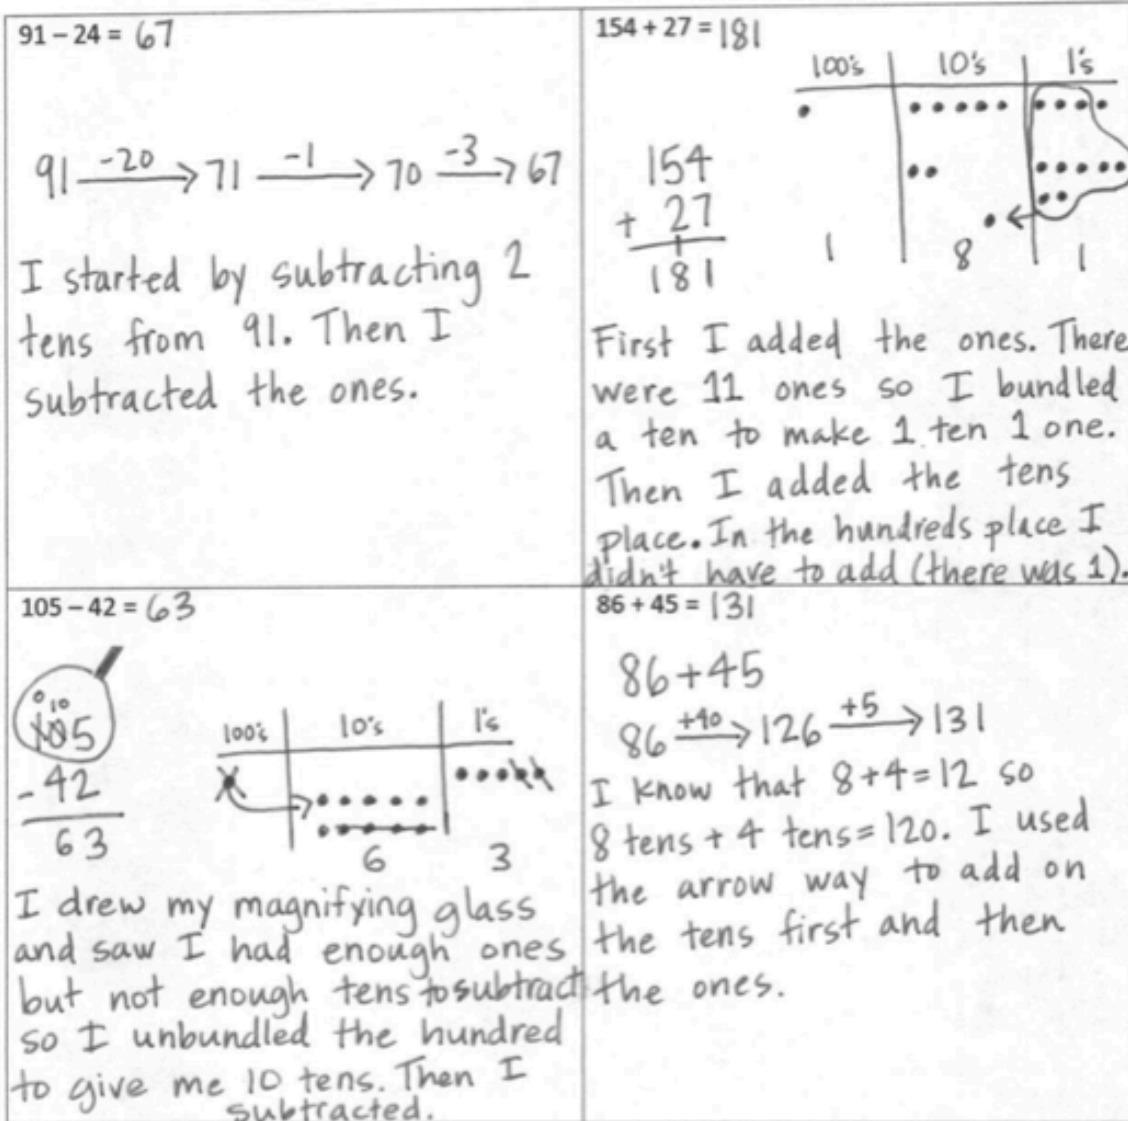 91 – 24 = 67
91 -20 71 -1 70 -3 67
I started by subtracting 2
tens from 91. Then I
subtracted the ones.
154 + 27 = 181
100's 10's 1's
154
+ 27
181
1 8 1
First I added the ones. There
were 11 ones so I bundled
a ten to make 1 ten 1 one.
Then I added the tens
place. In the hundreds place I
didn't have to add (there was 1).
105 – 42 = 63
0 10
105
- 42
63
100's 10's 1's
6 3
I drew my magnifying glass
and saw I had enough ones
but not enough tens to subtract
so I unbundled the hundred
to give me 10 tens. Then I
subtracted.
86 + 45 = 131
86+45
86 +40 126 +5 131
I know that 8+4=12 so
8 tens + 4 tens = 120. I used
the arrow way to add on
the tens first and then
the ones.